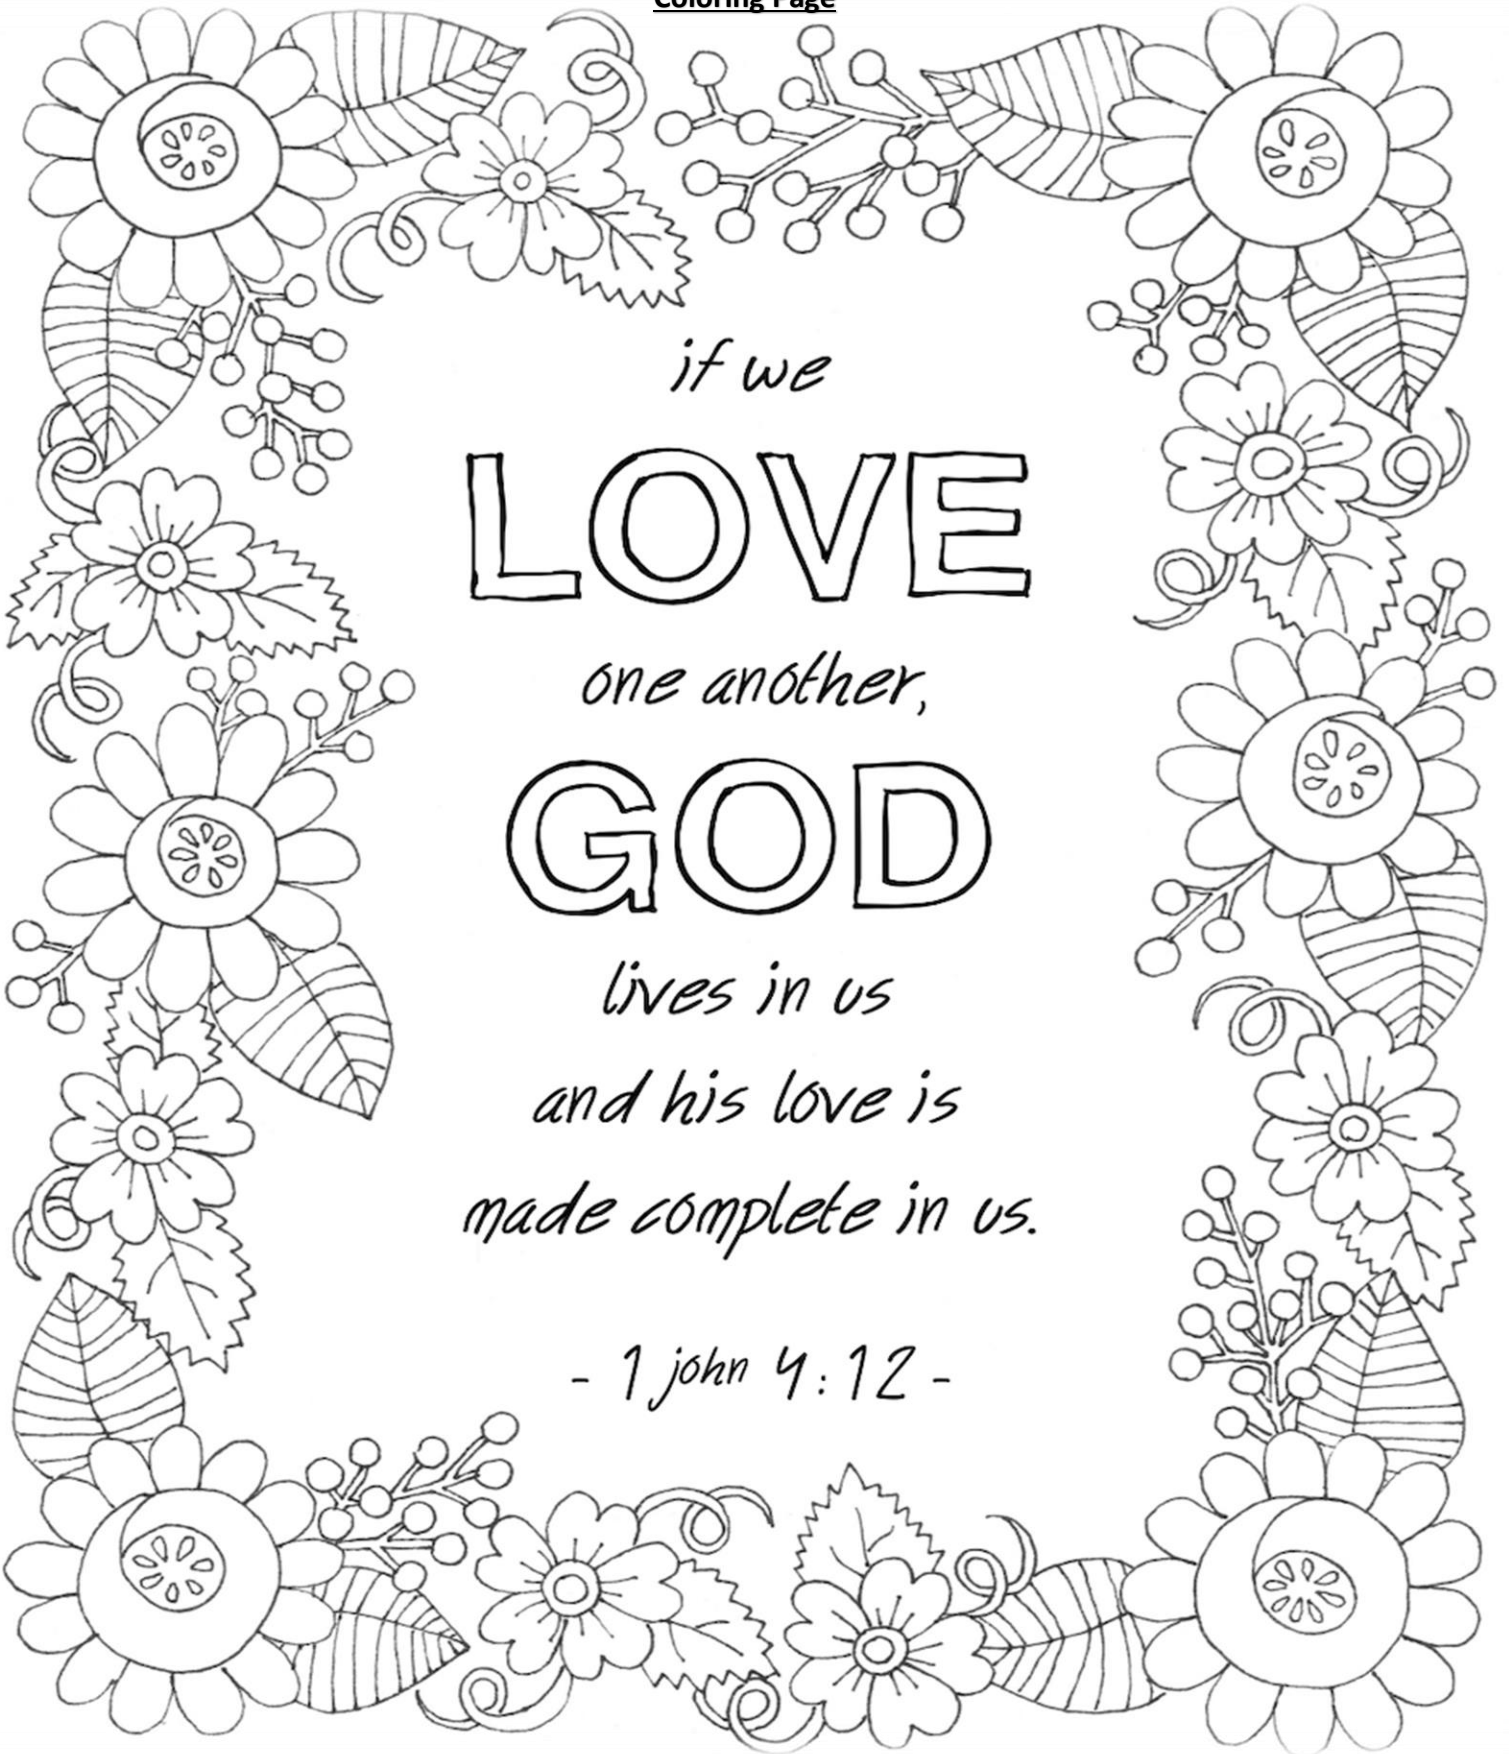 Coloring Page
if we
LOVE
one another,
GOD
lives in us
and his love is
made complete in us.
- 1 john 4:12 -